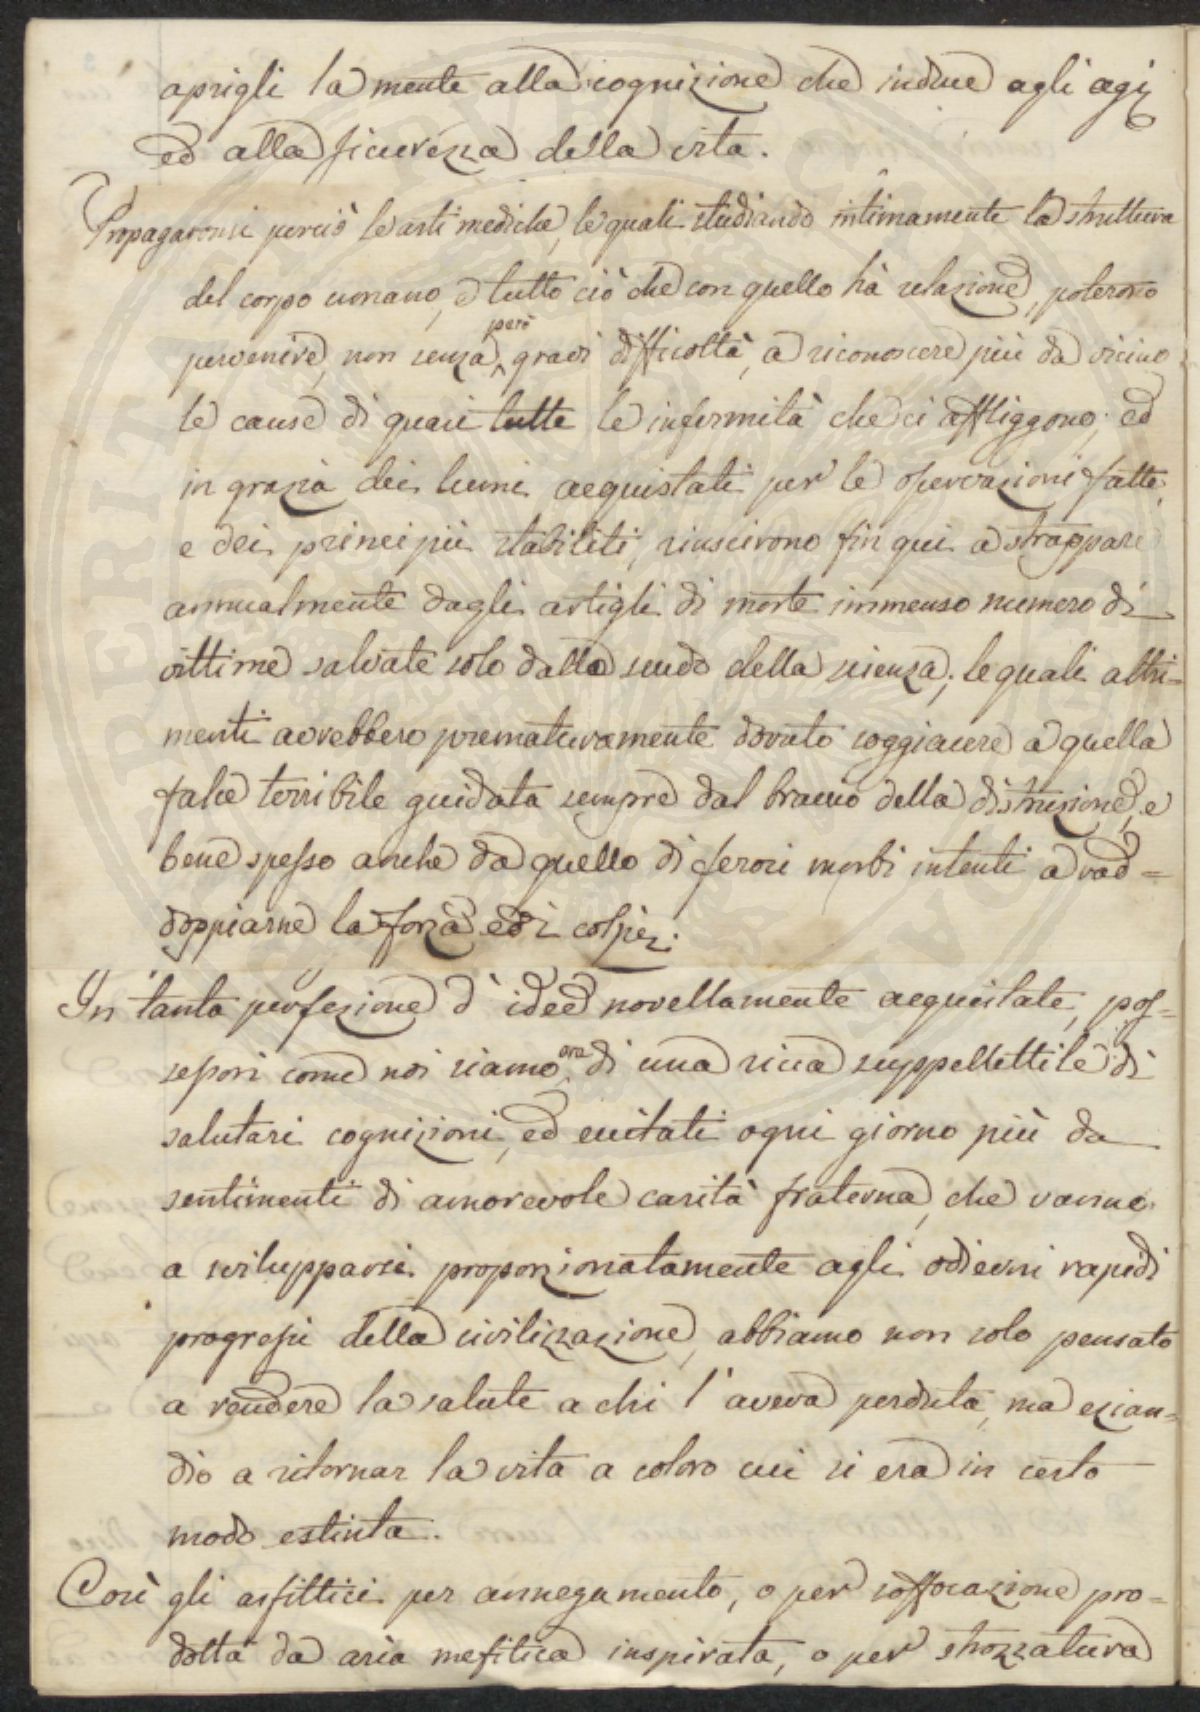 aprigli la mente alla cognizione che induce agli agi
ed alla sicurezza della vita.
Propagaronsi perciò le arti mediche, le quali studiando intimamente la struttura
del corpo umano, e tutto ciò che con quello hà relazione, poterono
pervenire, non senza però gravi difficoltà, a riconoscere più da vicino
le cause di quasi tutte le infermità che ci affliggono; ed
in grazia dei lumi acquistati per le osservazioni fatte,
e dei principii stabiliti, riuscirono fin qui a strappare
annualmente dagli artigli di morte immenso numero di
vittime salvate solo dallo scudo della scienza; le quali altri-
menti avrebbero prematuramente dovuto soggiacere a quella
falce terribile guidata sempre dal braccio della distruzione, e
bene spesso anche da quello di feroci morbi intenti a rad=
doppiarne la forza ed i colpi.
In tanta perfezione d'idee novellamente acquistate, pos=
sessori come noi siamo ora di una ricca suppellettile di
salutari cognizioni, ed eccitati ogni giorno più da
sentimenti di amorevole carità fraterna, che vanno
a svilupparsi proporzionatamente agli odierni rapidi
progressi della civilizzazione, abbiamo non solo pensato
a rendere la salute a chi l'aveva perduta, ma ezian=
dio a ritornar la vita a coloro cui si era in certo
modo estinta.
Così gli asfittici per annegamento, o per soffocazione pro=
dotta da aria mefitica inspirata, o per strozzatura